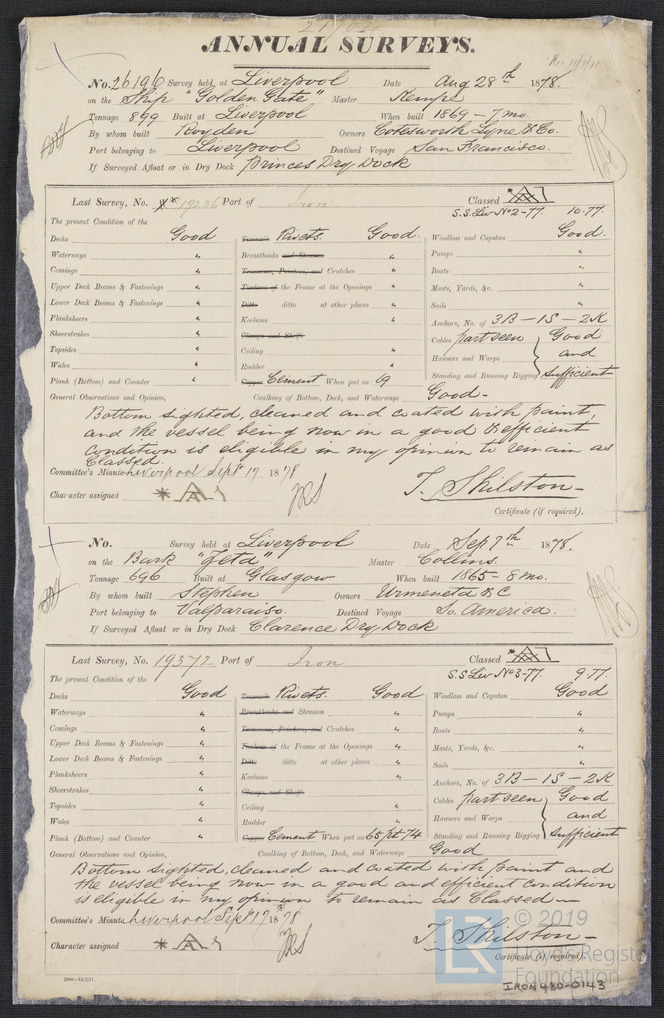 ANNUAL SURVEYS.
No. 26196 Survey held at Liverpool Date Aug 28th 1878.
on the Ship "Golden Gate" Master Kemps
Tonnage 899 Built at Liverpool When built 1869 - 7 mo.
By whom built Royden Owners Cotesworth Lyne & Co.
Port belonging to Liverpool Destined Voyage San Francisco.
If Surveyed Afloat or in Dry Dock Princes Dry Dock
Last Survey, No. 19236 Port of Iron Classed
S.S. Liv No 2-77. 10.77.
The present Condition of the
Decks Good Treenails Rivets. Good. Windlass and Capstan Good.
Waterways " Breasthooks and Stemson " Pumps "
Comings " Transoms, Pointers, and Crutches " Boats "
Upper Deck Beams & Fastenings " Timbers of the Frame at the Openings " Masts, Yards, &c. "
Lower Deck Beams & Fastenings " Ditto ditto at other places " Sails "
Planksheers " Keelsons " Anchors, No. of 3B - 1S - 2K
Sheerstrakes " Clamps and Shelfs Cables part seen Good
Topsides " Ceiling " Hawsers and Warps and
Wales " Rudder " Standing and Running Rigging Sufficient
Plank (Bottom) and Counter " Copper Cement When put on 69
General Observations and Opinion, Caulking of Bottom, Deck, and Waterways Good-
Bottom sighted, cleaned and coated with paint,
and the vessel being now in a good & efficient
condition is eligible in my opinion to remain as
Classed.
Committee's Minute Liverpool Sept 17 1878
Character assigned
T. Shilston-
Certificate (if required).
No. Survey held at Liverpool Date Sep 7th 1878.
on the Bark "Zeta" Master Collins.
Tonnage 696 Built at Glasgow When built 1865 - 8 mo.
By whom built Stephen Owners Urmeneta & C
Port belonging to Valparaiso. Destined Voyage So. America.
If Surveyed Afloat or in Dry Dock Clarence Dry Dock
Last Survey, No. 19572 Port of Iron Classed
S.S Liv No 3-77. 9.77.
The present Condition of the
Decks Good Treenails Rivets. Good Windlass and Capstan Good
Waterways " Breasthooks and Stemson " Pumps "
Comings " Transoms, Pointers, and Crutches " Boats "
Upper Deck Beams & Fastenings " Timbers of the Frame at the Openings " Masts, Yards, &c. "
Lower Deck Beams & Fastenings " Ditto ditto at other places " Sails "
Planksheers " Keelsons " Anchors, No. of 3B - 1S - 2K
Sheerstrakes " Clamps and Shelfs Cables part seen Good
Topsides " Ceiling " Hawsers and Warps and
Wales " Rudder " Standing and Running Rigging Sufficient
Plank (Bottom) and Counter " Copper Cement When put on 65 pt 74
General Observations and Opinion, Caulking of Bottom, Deck, and Waterways Good
Bottom sighted, cleaned and coated with paint and
the vessel being now in a good and efficient condition
is eligible in my opinion to remain as Classed-
Committee's Minute Liverpool Sept 17 1878
Character assigned
T. Shilston-
Certificate (if required).
LR © 2019
Lloyd's Register
Foundation
IRON480-0143